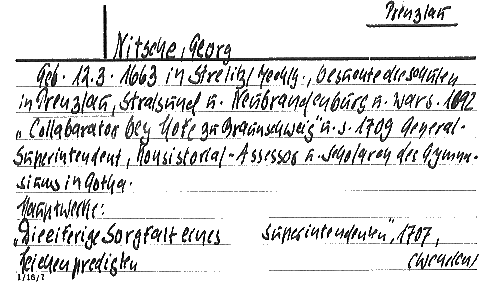 Prenzlau
Nitsche, Georg
Geb. 12.3. 1663 in Strelitz/Mecklg., besuchte die Schulen
in Prenzlau, Stralsund u. Neubrandenburg u. wars. 1692
"Collabarator bey Hofe zu Braunschweig" u. s. 1709 General-
Superintendent, Konsistorial-Assessor u. Scholarch des Gymna-
siums in Gotha.
Hauptwerke:
"Die eiferige Sorgfalt eines Superintendenten", 1707,
Leichenpredigten
1/16/2